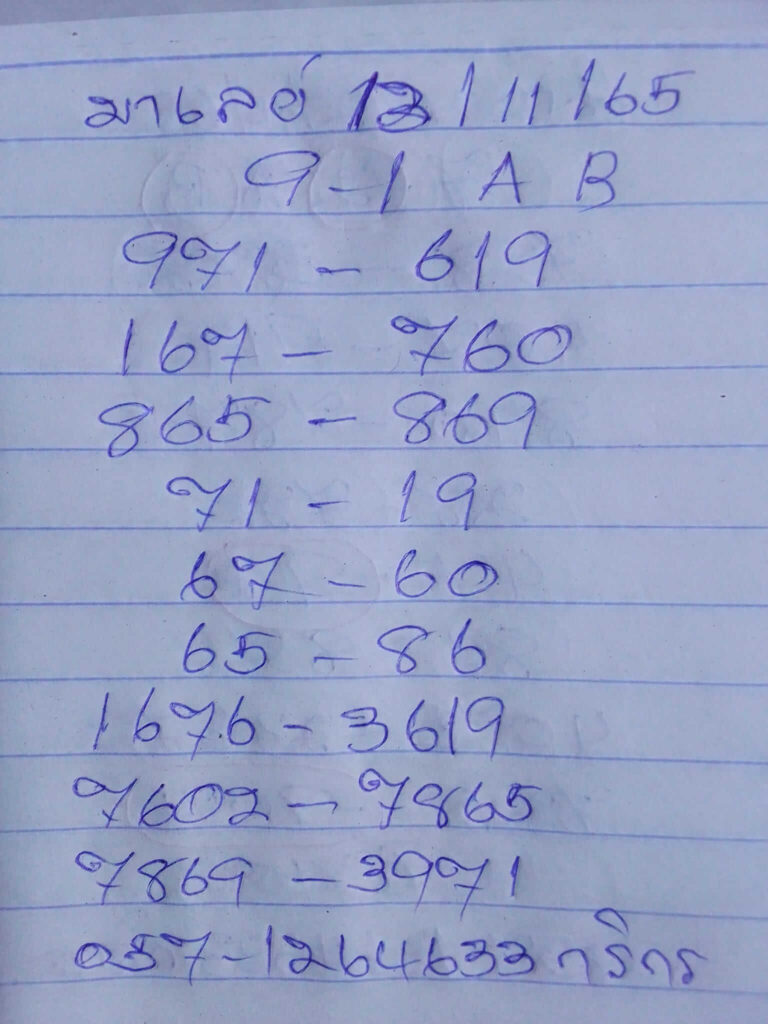 มาเลย์ 12/11/65
9-1 A B
971 - 619
167 - 760
865 - 869
71 - 19
67 - 60
65 - 86
1676 - 3619
7602 - 7865
7869 - 3971
057-1264633 กริกร